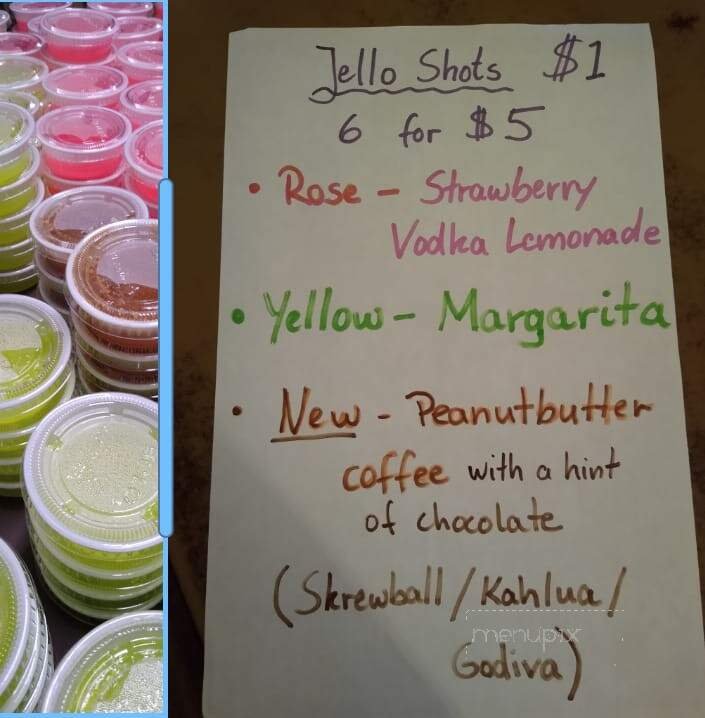 Jello Shots $1
6 for $5
• Rose - Strawberry
Vodka Lemonade
• Yellow - Margarita
• New - Peanutbutter
coffee with a hint
of chocolate
(Skrewball/Kahlua/
menupix
Godiva)